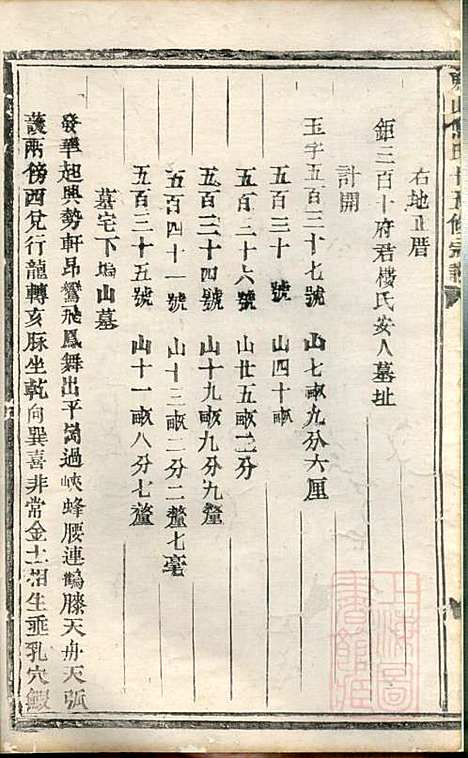 右地止厝
鉅三百十府君樓氏安人墓址
計開
玉字五百三十七號　山七畝九分六厘
五百三十　號　山四十畝
五百三十六號　山廿五畝二分
五百三十四號　山十九畝九分九釐
五百四十一號　山十三畝二分二釐七毫
五百三十五號　山十一畝八分七釐
墓宅下塢山墓
發華起興勢軒昂鸞飛鳳舞出平崗過峽蜂腰連鶴膝天舟天弧
護兩傍酉兌行龍轉亥脉坐乾向巽喜非常金土相生垂乳穴鰕